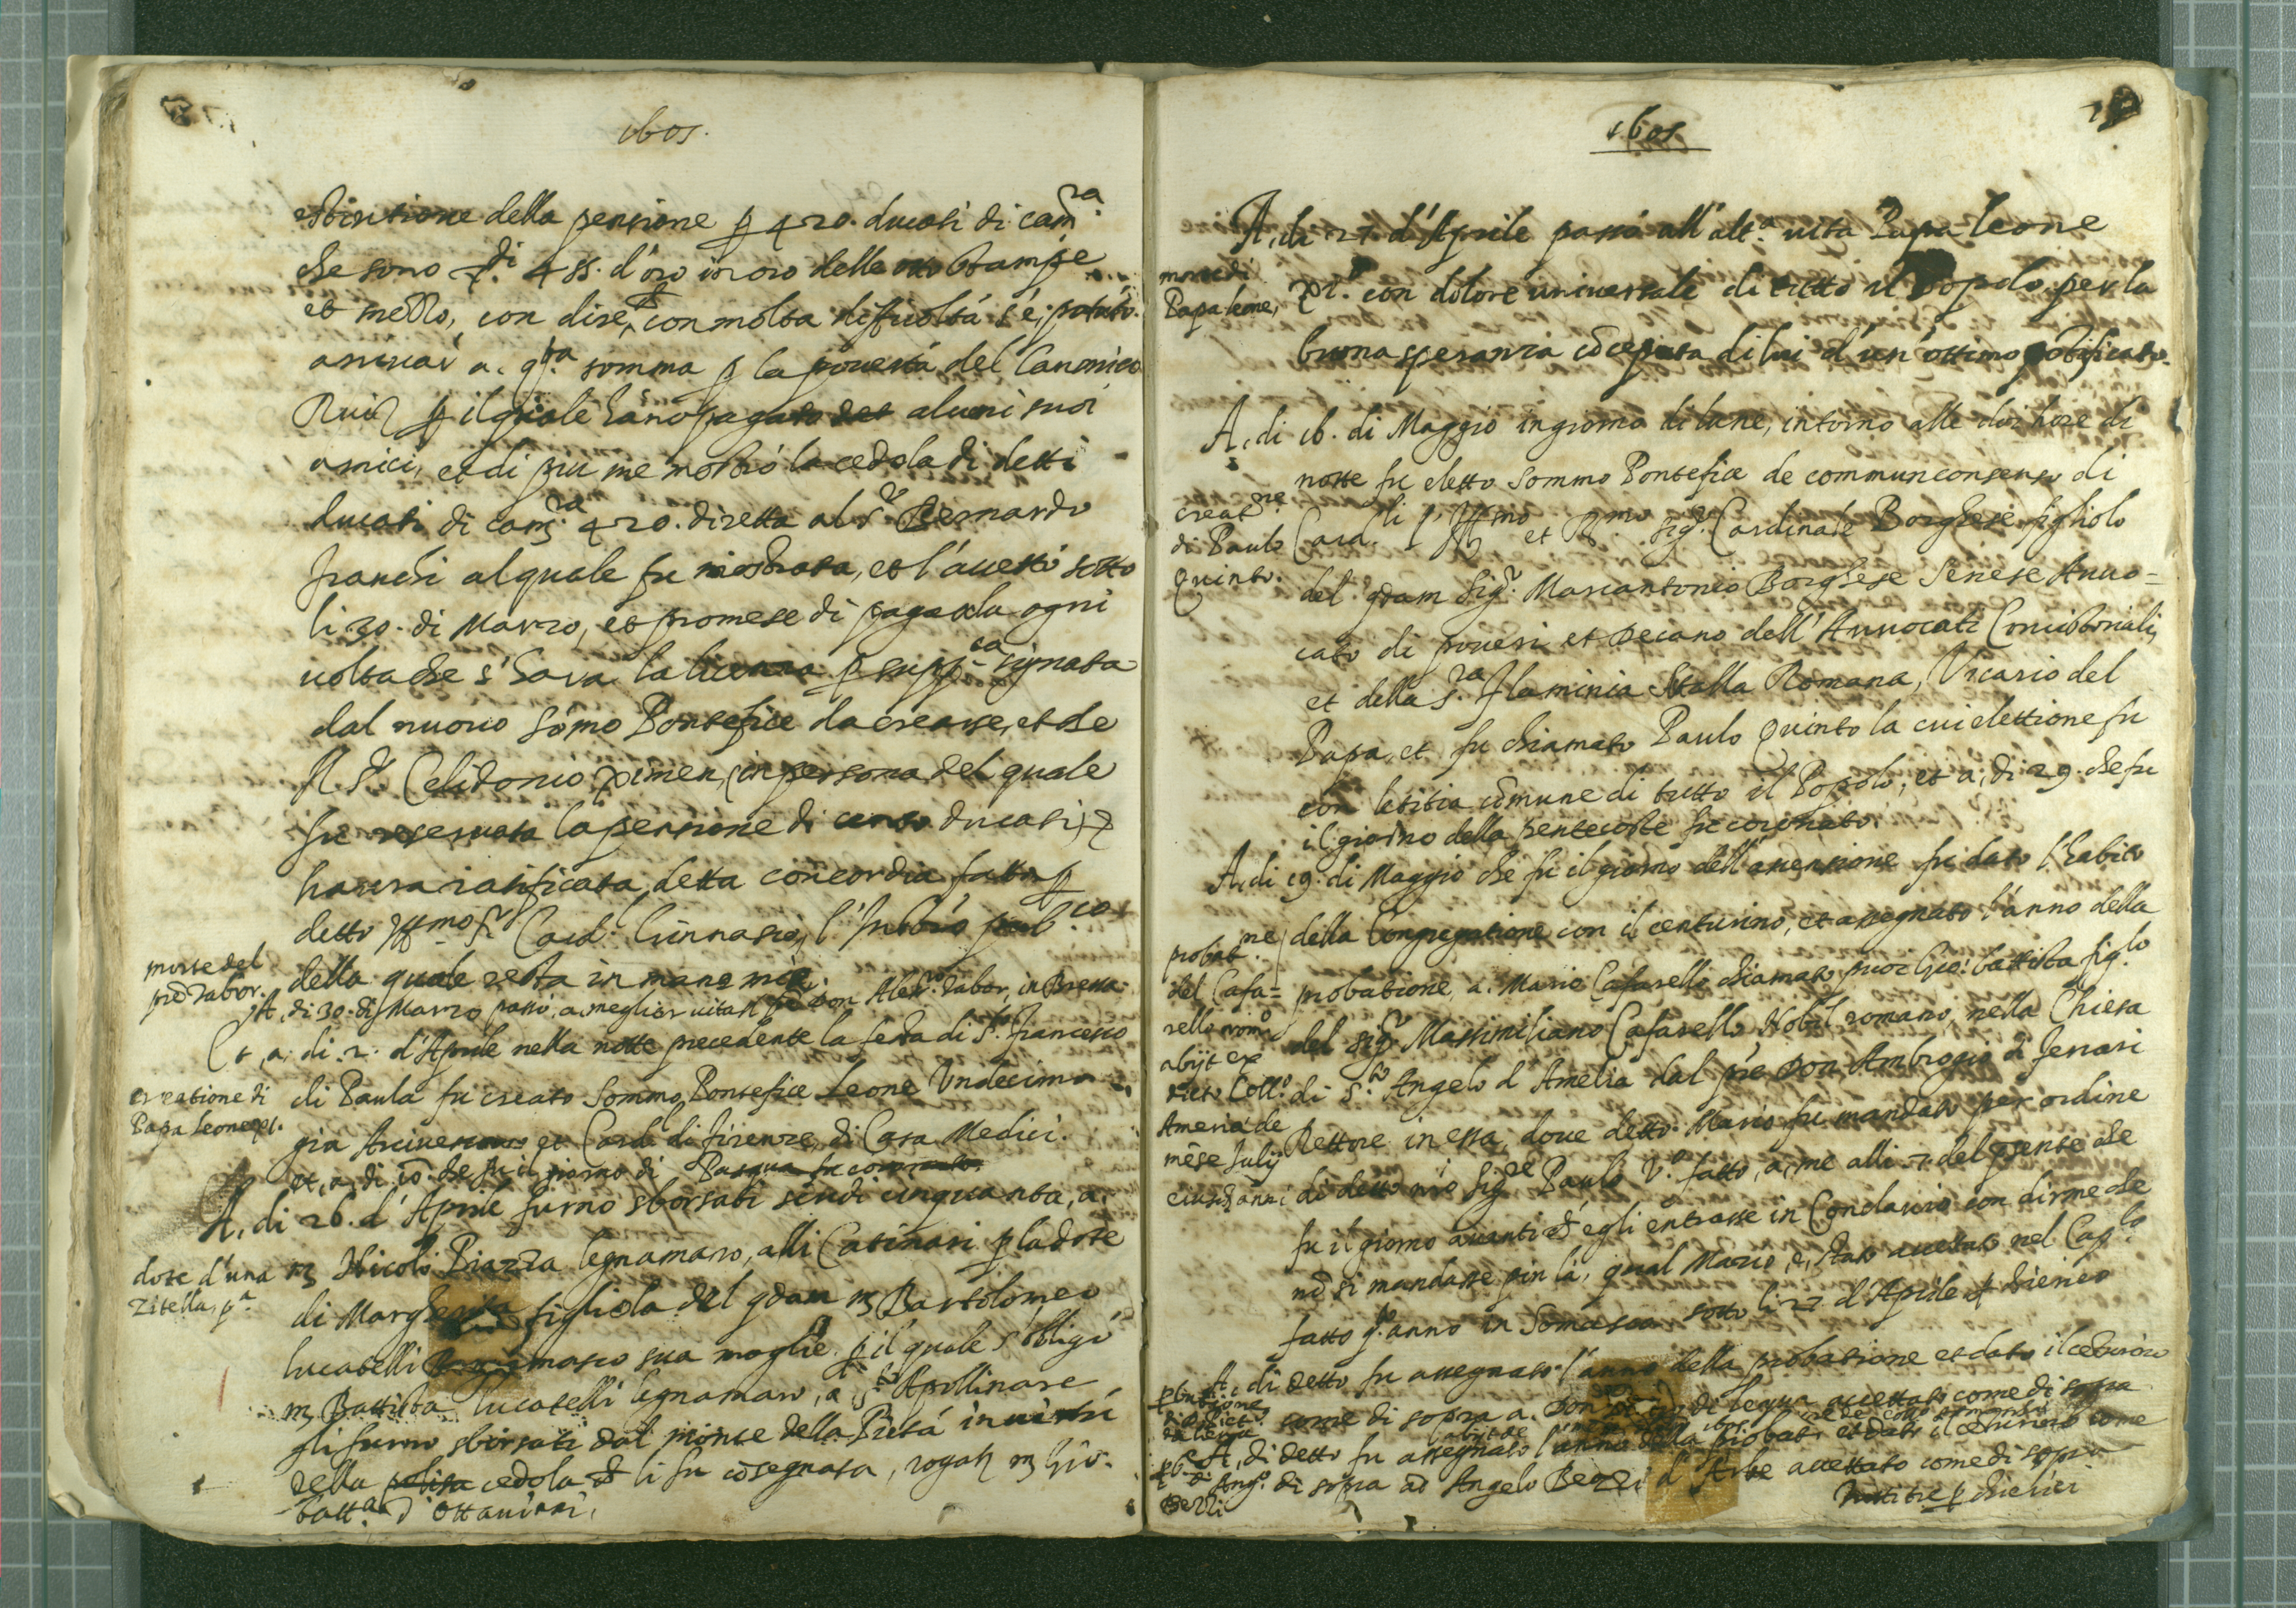 1605.
estintione della pensione p 420. ducati di cam.ra
che sono di 455. d'oro in oro delle otto stampe
et mezzo, con dire, con molta difficoltá s'é, potuto
arrivar a. q.ta somma p la povertá del Canonico
Ruiz p il quale hano pagato alcuni suoi
amici, et di piu me mostró la cedola di detti
ducati di cam.ra 420. diretta al S.r Bernardo
franchi al quale fu mostrata, et l'accettó sotto
li 30. di Marzo, et promese di pagarla ogni
volta che s'hava la licenza p supp.ca signata
dal nuovo Sómo Pontefice da crearse, et che
R. S.r Celidonio Ximen, in persona del quale
fu reservata la pensione di cento ducati,
havera ratificata, detta concordia fatta p
detto Ill.mo S.r Card. Ginnasio, l'
della quale resta in mano mia.
morte del
pre Tabor.
A, di 30. di Marzo passó, a, meglior vita il pre Don Aless.ro Tabor, in Bressa.
Et, a, di. 2. d'Aprile nella notte precedente la festa di S.to Francesco
creatione di
Papa Leone XI.
di Paula fu creato Sommo Pontefice Leone Undecimo
gia Arcivescovo et Card. di firenze, di Casa Medici.
et, a, di 10. che fu il giorno di Pasqua fu coronato.
A, di 26. d'Aprile furno sborsati scudi cinquanta, a.
dote d'una
Zitella, p.a
m Nicolò Piazza legnamaro, alli Catinari p la dote
di Margherita figliola del qdam m Bartolomeo
lucatelli sua moglie. p il quale s'obligó
m Battista lucatelli legnamaro, a S.to Apollinare
gli furno sborsati dal monte della Pietá in virtú
della polisa cedola ch li fu cosegnata, rogat m Gio.
Batt.a d'Ottaviani,
1605
A, di 27 d'Aprile passó all'alt.a vita Papa Leone
morte di
Papa leone,
XI. con dolore universale di tutto il Popolo per la
buona speranza coceputa di lui d'un' ottimo potificato.
A, di 16. di Maggio in giorno di lune, intorno alle doi hore di
notte fu eletto Sommo Pontefice de commun consenso di
creat.ne
di Paulo
Quinto.
Card.li l'Ill.mo et R.mo Sig.r Cardinale Borghese figliolo
del qdam Sig.r Marcantonio Borghese Senese Avvo=
cato di poveri et Decano dell'Avvocati Concistoriali,
et della S.ra Flaminia Stalla Romana, Vicario del
Papa, et fu chiamato Paulo Quinto la cui elettione fu
con letitia comune di tutto il Popolo, et a, di 29. che fu
il giorno della pentecoste fu coronato.
A, di 19. di Maggio che fu il giorno dell'ascensione fu dato l'habito
probat.ne
del Cafa=
rello
abijt ex
dicto Coll.o
Ameria de
mése Julij
eiusd anni
della Congregatione con il centurino, et assegnato l'anno della
probatione, a. Mario Cafarello chiamato Gio: battista fig.lo
del Sig.r Massimiliano Cafarello Nobil romano, nella Chiesa
di S.to Angelo d'Amelia dal pre Don Ambrogio di ferrari
Rettore in essa, dove detto Mario fu mandato per ordine
di detto nro Sig.re Paulo V.o fatto, a, me alli 7. del presente che
fu il giorno avanti ch'egli entrasse in Conclavio con dirme che
no si mandasse pin lá, qual Mario, é, stato accettato nel Cap.lo
fatto q.o anno in Somasca sotto li 27 d'Aprile p chierico
A, di detto fu assegnato l'anno della probatione et dato il centurino
come di sopra a. Don di legua accettato come di sopra
A, di detto fu assegnato l'anno della probat.ne et dato il centurino come
di Ang.o
Bezzi
di sopra ad Angelo Bezzi d' accettato come di sopra
tutti tre p chierici